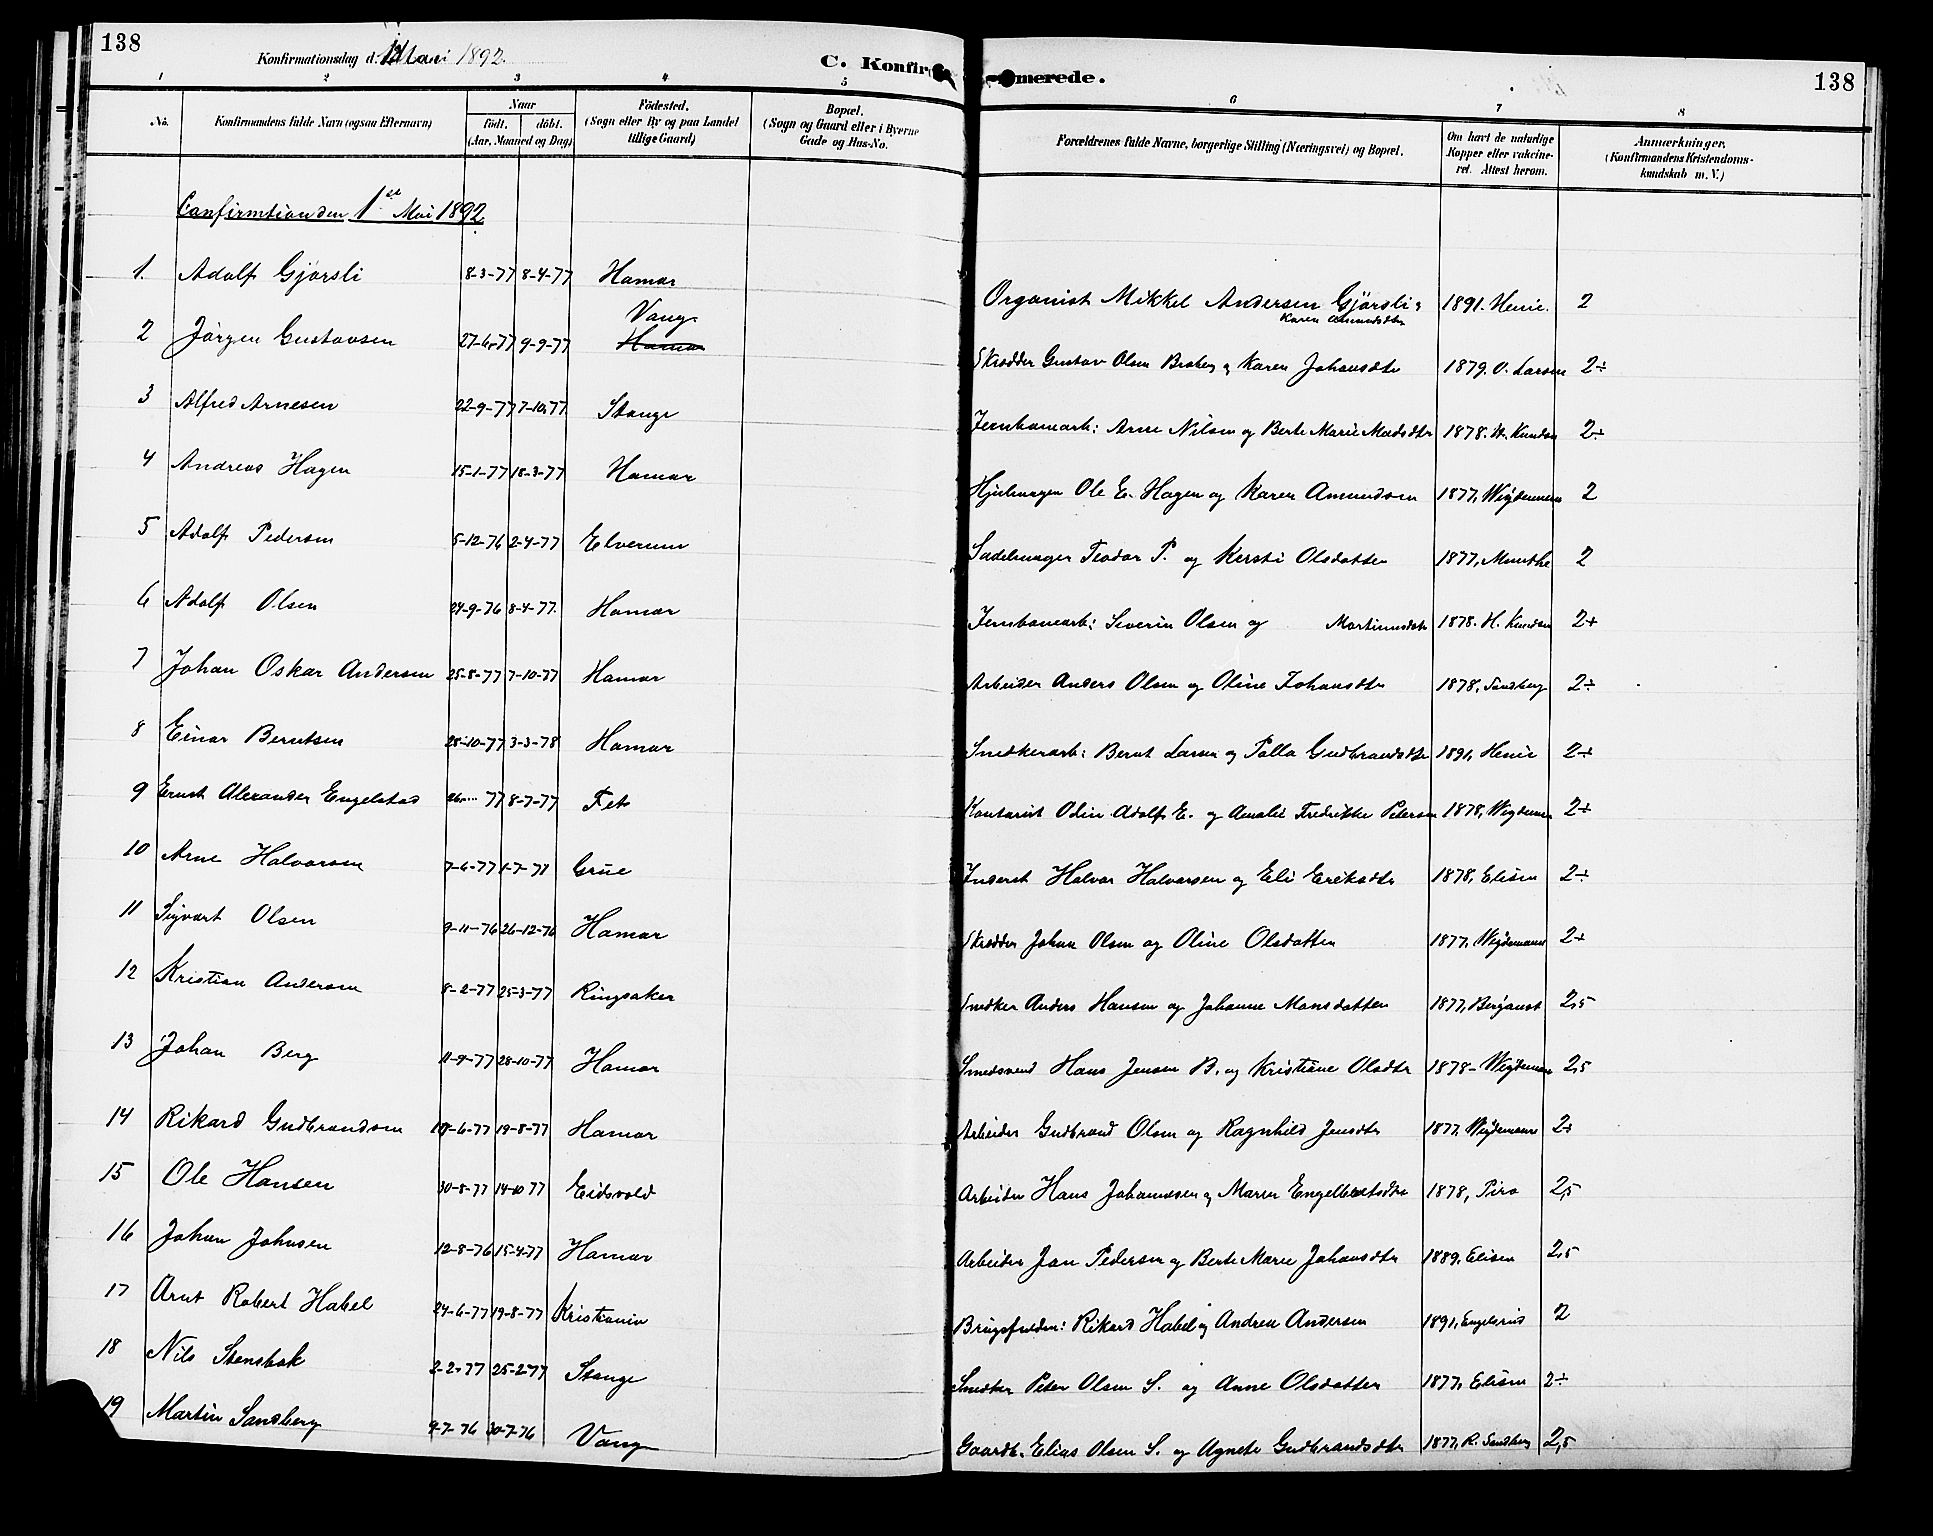 138
Konfirmationsdag d. 1 Mai 1892.
C. Konfirmerede.
138
1 2 3 4 5 6 7 8
No. Konfirmandens fulde Navn (ogsaa Efternavn) Naar født. døbt. (Aar, Maaned og Dag) Födested. (Sogn eller By og paa Landet tillige Gaard) Bopæl. (Sogn og Gaard eller i Byerne Gade og Hus-No. Forældrenes fulde Navne, borgerlige Stilling (Næringsvei) og Bopæl. Om havt de naturlige Kopper eller vakcineret. Attest herom. Anmærkninger. (Konfirmandens Kristendomskundskab m. V.)
Confirmtion den 1ste Mai 1892
1. Adolf Gjørsli 8-3-77 8-4-77 Hamar Organist Mikkel Andersen Gjørsli & Karen Amundsdtr 1891. Henie. 2
2 Jørgen Gustavsen 27-6-77 9-9-77 Vang Hamar Skrædder Gustav Olsen Broberg og Karen Johansdtr 1879. O. Larsen 2÷
3 Alfred Arnesen 22-9-77 7-10-77 Stange Jernbanearb: Arne Nilsen og Berte Marie Madsdtr 1878. H. Knudsen 2÷
4 Andreas Hagen 15-1-77 18-3-77 Hamar Hjulmager Ole E. Hagen og Karen Amundsen 1877, Weydemann 2
5 Adolf Pedersen 5-12-76 2-4-77 Elverum Sadelmager Teodor P. og Kersti Olsdatter 1877, Munthe 2
6 Adolf Olsen 24-9-76 8-4-77. Hamar Jernbanearb: Severin Olsen og Martinusdtr 1878. H. Knudsen 2+
7 Johan Oskar Andersen 25-8-77 7-10-77 Hamar Arbeider Anders Olsen og Oline Johansdtr 1878, Sandberg 2÷
8 Einar Berntsen 28-10-77 3-3-78 Hamar Snedkerarb: Bernt Larsen og Palla Gudbrandsdtr 1891, Henie 2÷
9 Ernst Alexander Engelstad 26-... 77 8-7-77 Fet Kontorist Odin Adolf E. og Amalie Fredrikke Petersen 1878, Weydemann 2÷
10 Arne Halvorsen 7-6-77 1-7-77 Grue Inderst Halvor Halvorsen og Eli Eriksdtr 1878, Elisen 2÷
11 Sigvart Olsen 9-11-76 26-12-76 Hamar Skrædder Johan Olsen og Oline Olsdatter 1877, Weydemann 2÷
12 Kristian Andersen 8-2-77 25-3-77 Ringsaker Snedker Anders Hansen og Johanne Monsdatter 1877, 2,5
13 Johan Berg 11-9-77 28-10-77 Hamar Smedsvend Hans Jensen B. og Kristine Olsdtr 1878- Weydemann 2,5
14 Rikard Gudbrandsen -6-77 19-8-77 Hamar Arbeider Gudbrand Olsen og Ragnhild Jensdtr 1877, Weydemann 2+
15 Ole Hansen 30-8-77 14-10 77 Eidsvold Arbeider Hans Johannesen og Maren Engelbretsdtr 1878, Piro 2,5
16 Johan Johnsen 12-8-76 15-4-77 Hamar Arbeider Jon Pedersen og Berte Marie Johansdtr 1889, Elisen 2,5
17 Arnt Robert Habel 24-6-77 19-8-77 Kristiania Brugsfuldm: Rikard Habel og Andrea Andersen 1891, Engelsrud 2
18 Nils Stensbak 2-2-77 25-2-77 Stange Snedker Peter Olsen S. og Anne Olsdatter 1877, Elisen 2÷
19 Martin Sandberg 9-7-76 30-7-76 Vang Gaardb. Elias Olsen S. og Agnete Gudbrandsdtr 1877, R. Sandberg 2,5